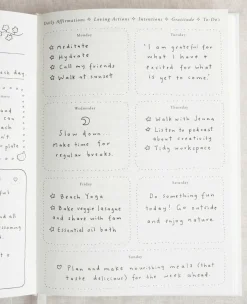 Daily Affirmations + Loving Actions + Intentions + Gratitude + To-Do's
Monday
Meditate
Hydrate
Call my friends
Walk at sunset
Tuesday
'I am grateful for
what I have +
excited for what
is yet to come.'
Wednesday
Slow down.
Make time for
regular breaks.
Thursday
Walk with Jenna
Listen to podcast
about creativity
Tidy workspace
Friday
Beach Yoga
Bake veggie lasagne
and share with fam
Essential oil bath
Saturday
Do something fun
today! Go outside
and enjoy nature.
Sunday
Plan and make nourishing meals (that
taste delicious) for the week ahead.